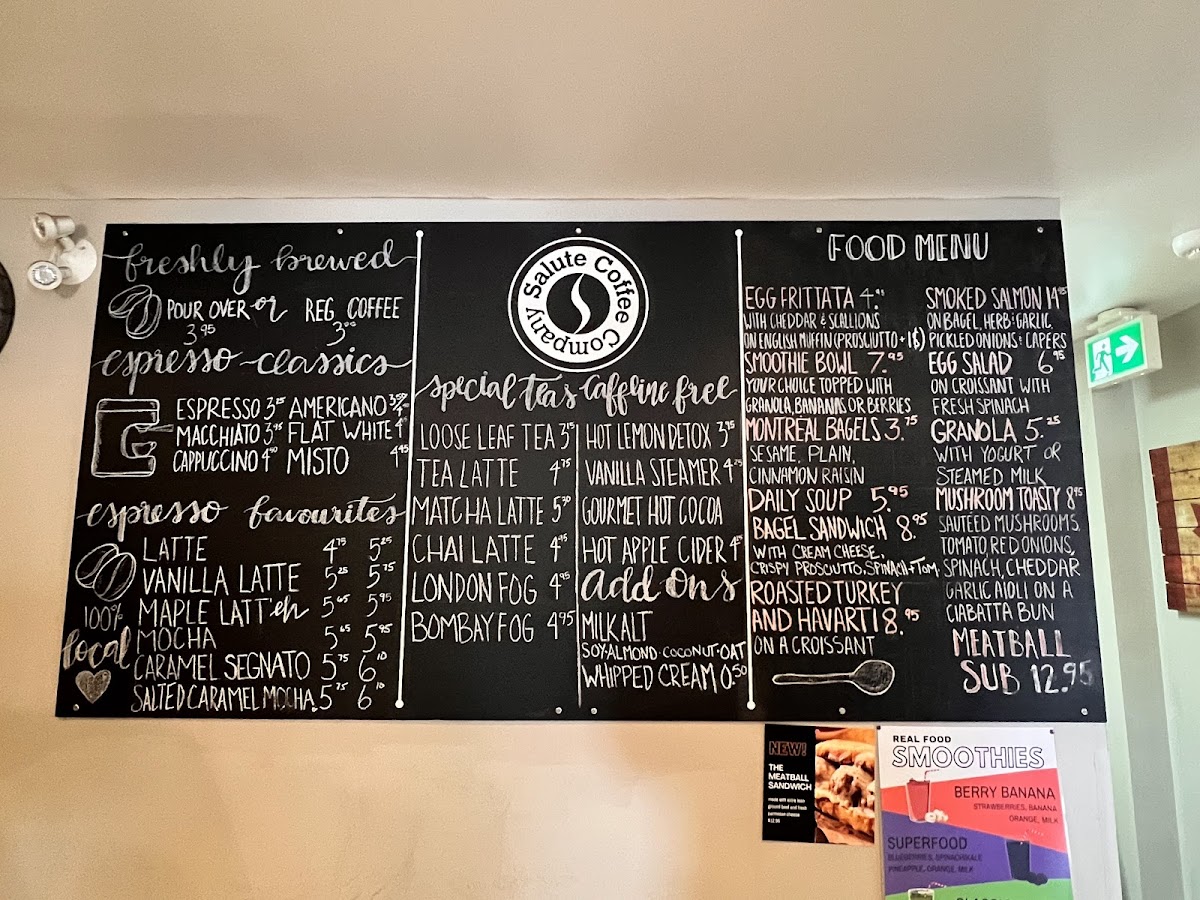 freshly brewed
POUR OVER or REG COFFEE
3.95
espresso classics
ESPRESSO AMERICANO
MACCHIATO FLAT WHITE
CAPPUCCINO MISTO
espresso favourites
LATTE 4.75 5.25
VANILLA LATTE 5.25 5.75
MAPLE LATT'eh 5.65 5.95
MOCHA 5.65 5.95
CARAMEL SEGNATO 5.75 6.10
SALTED CARAMEL MOCHA 5.75 6.10
100%
local
Salute Coffee Company
special tea's
LOOSE LEAF TEA
TEA LATTE 4.75
MATCHA LATTE
CHAI LATTE 4.95
LONDON FOG 4.95
BOMBAY FOG 4.95
caffeine free
HOT LEMON DETOX
VANILLA STEAMER
GOURMET HOT COCOA
HOT APPLE CIDER
add ons
MILK ALT
SOY·ALMOND·COCONUT·OAT
WHIPPED CREAM 0.50
FOOD MENU
EGG FRITTATA
WITH CHEDDAR & SCALLIONS
ON ENGLISH MUFFIN (PROSCIUTTO + 1$)
SMOOTHIE BOWL 7.95
YOUR CHOICE TOPPED WITH
GRANOLA, BANANAS OR BERRIES
MONTRÉAL BAGELS 3.75
SESAME, PLAIN,
CINNAMON RAISIN
DAILY SOUP 5.95
BAGEL SANDWICH 8.95
WITH CREAM CHEESE,
CRISPY PROSCIUTTO, SPINACH + TOM.
ROASTED TURKEY
AND HAVARTI 8.95
ON A CROISSANT
SMOKED SALMON 14.95
ON BAGEL, HERB & GARLIC,
PICKLED ONIONS & CAPERS
EGG SALAD 6.95
ON CROISSANT WITH
FRESH SPINACH
GRANOLA 5.25
WITH YOGURT OR
STEAMED MILK
MUSHROOM TOASTY 8.95
SAUTEED MUSHROOMS,
TOMATO, RED ONIONS,
SPINACH, CHEDDAR
GARLIC AIOLI ON A
CIABATTA BUN
MEATBALL
SUB 12.95
NEW!
THE
MEATBALL
SANDWICH
made with extra lean
ground beef and fresh
parmesan cheese
$12.95
REAL FOOD
SMOOTHIES
BERRY BANANA
STRAWBERRIES, BANANA
ORANGE, MILK
SUPERFOOD
BLUEBERRIES, SPINACH/KALE
PINEAPPLE, ORANGE, MILK